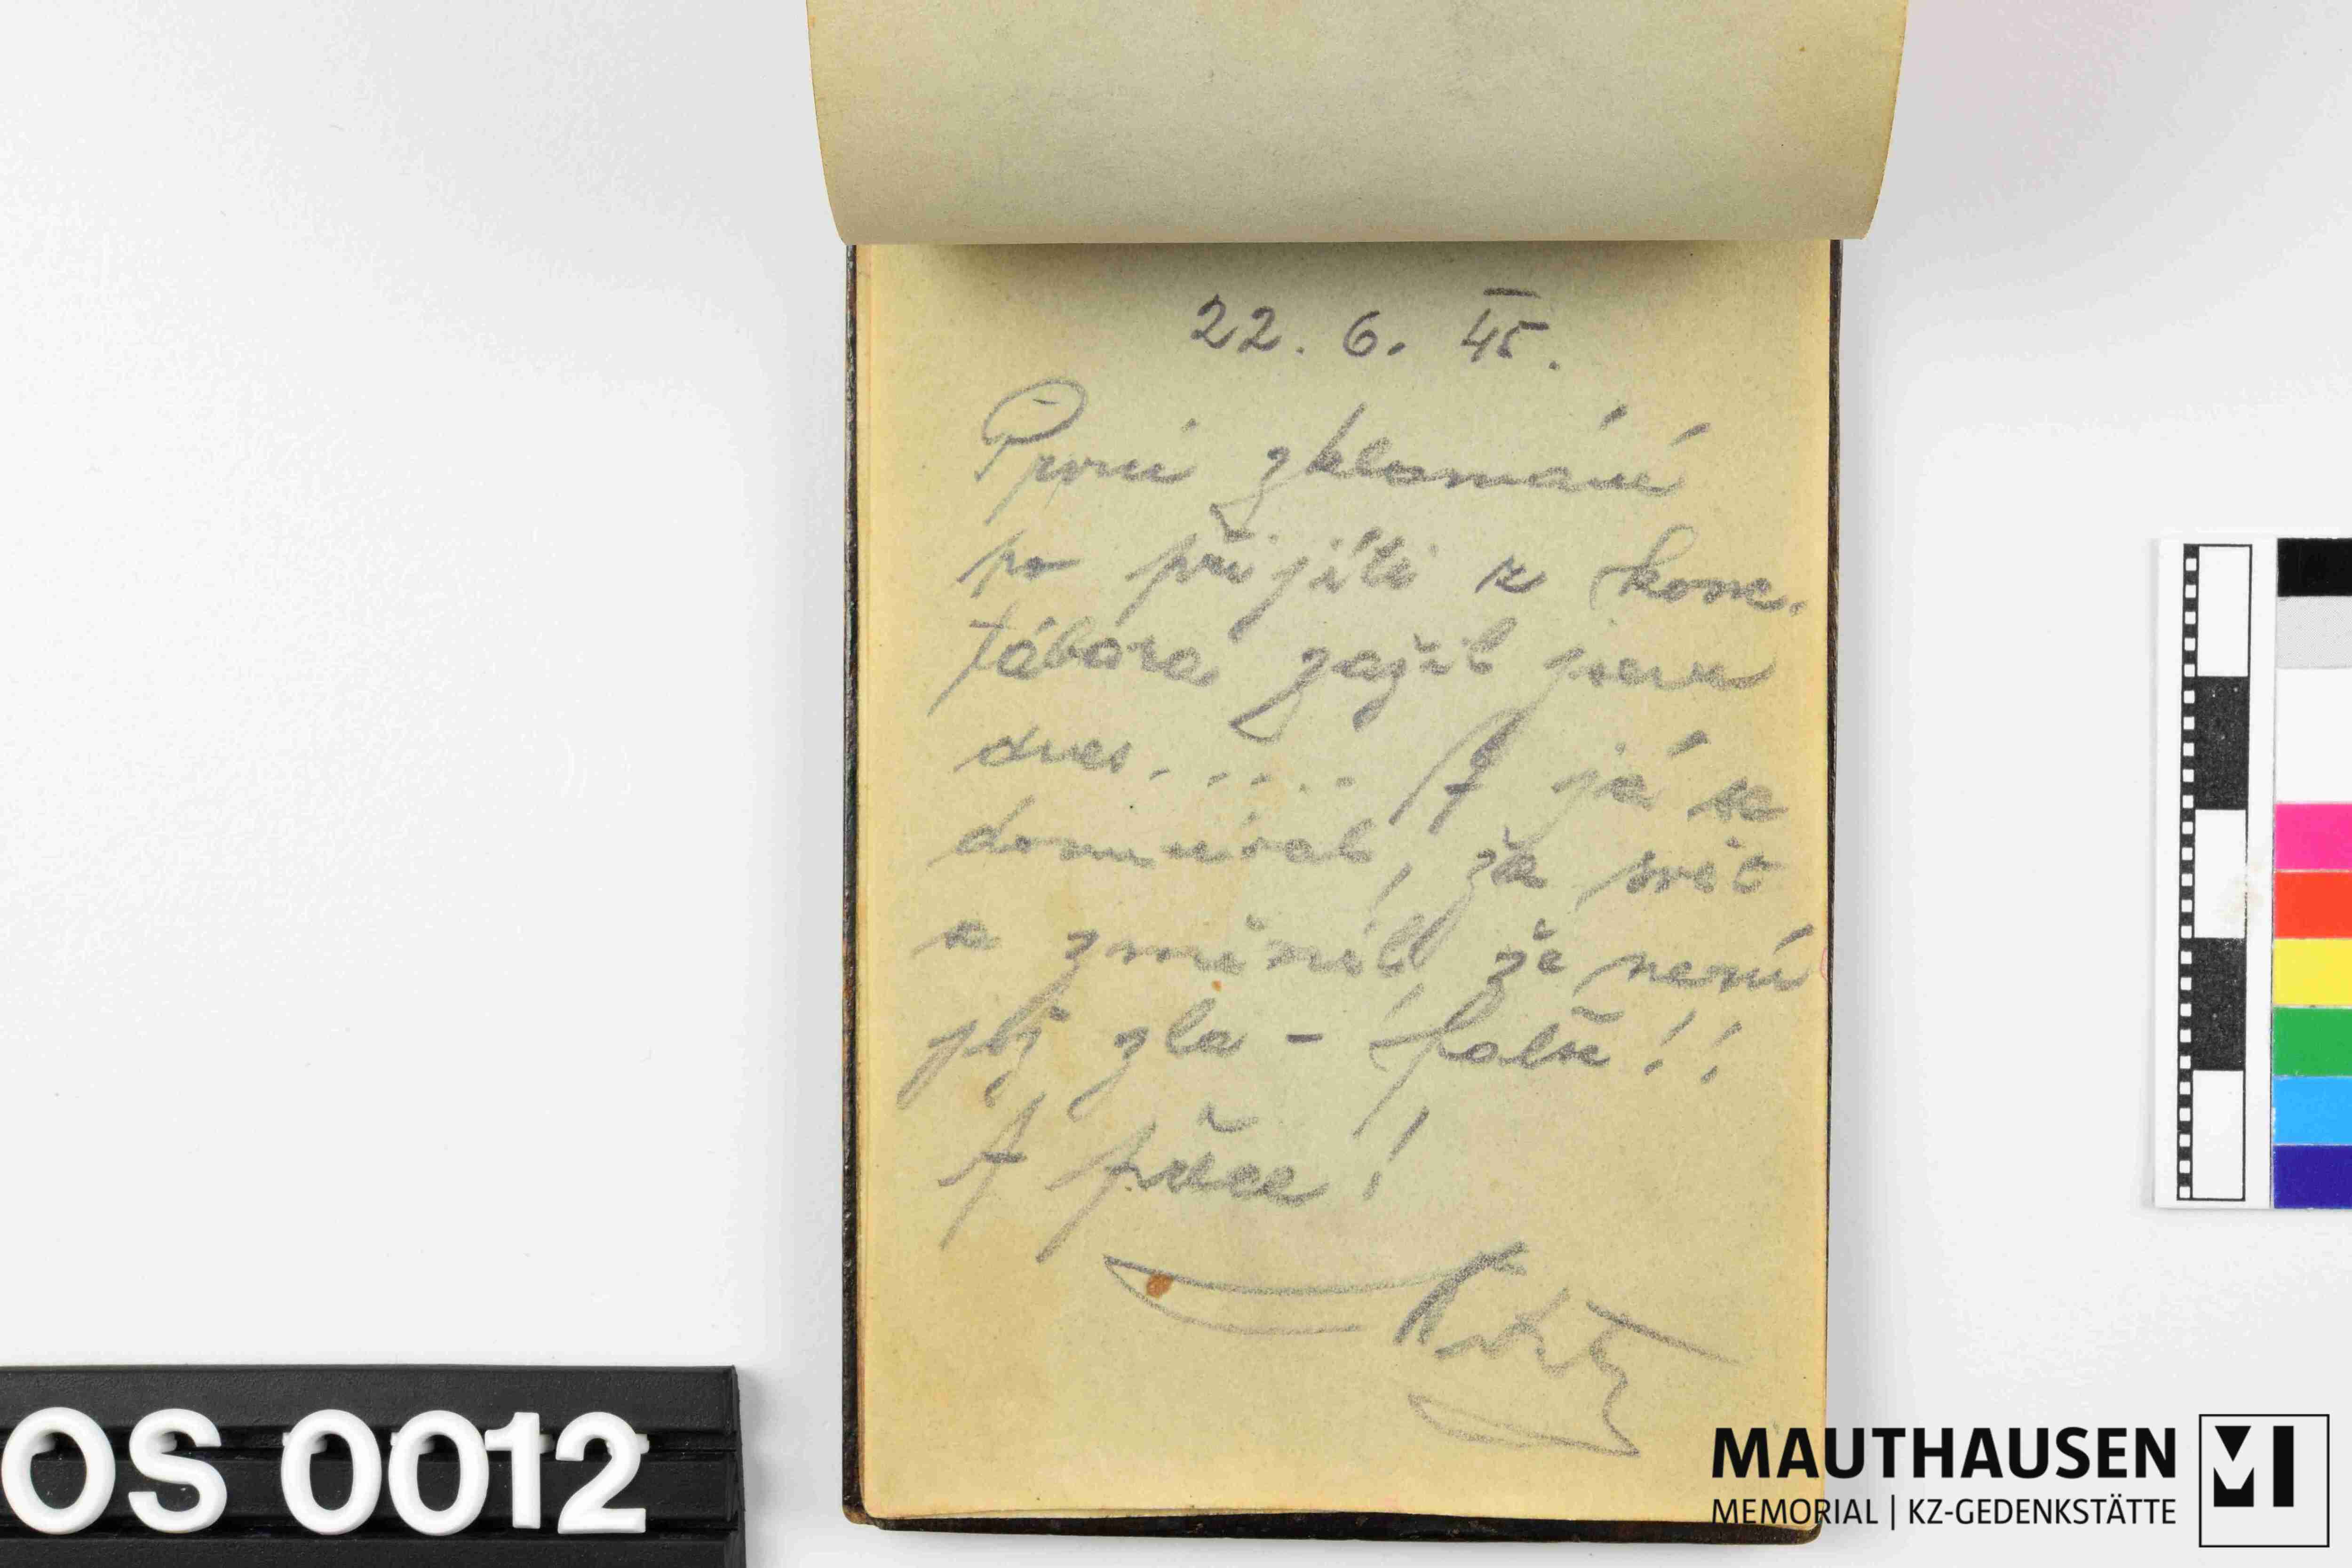 22. 6. 45.
První zklamání
po přijítí z konc.
tábora zažil jsem
dnes..... A já se
domníval, že svět
se změnil, že není
již zla - falše!!
A přece!
OS 0012
MAUTHAUSEN
MEMORIAL | KZ-GEDENKSTÄTTE